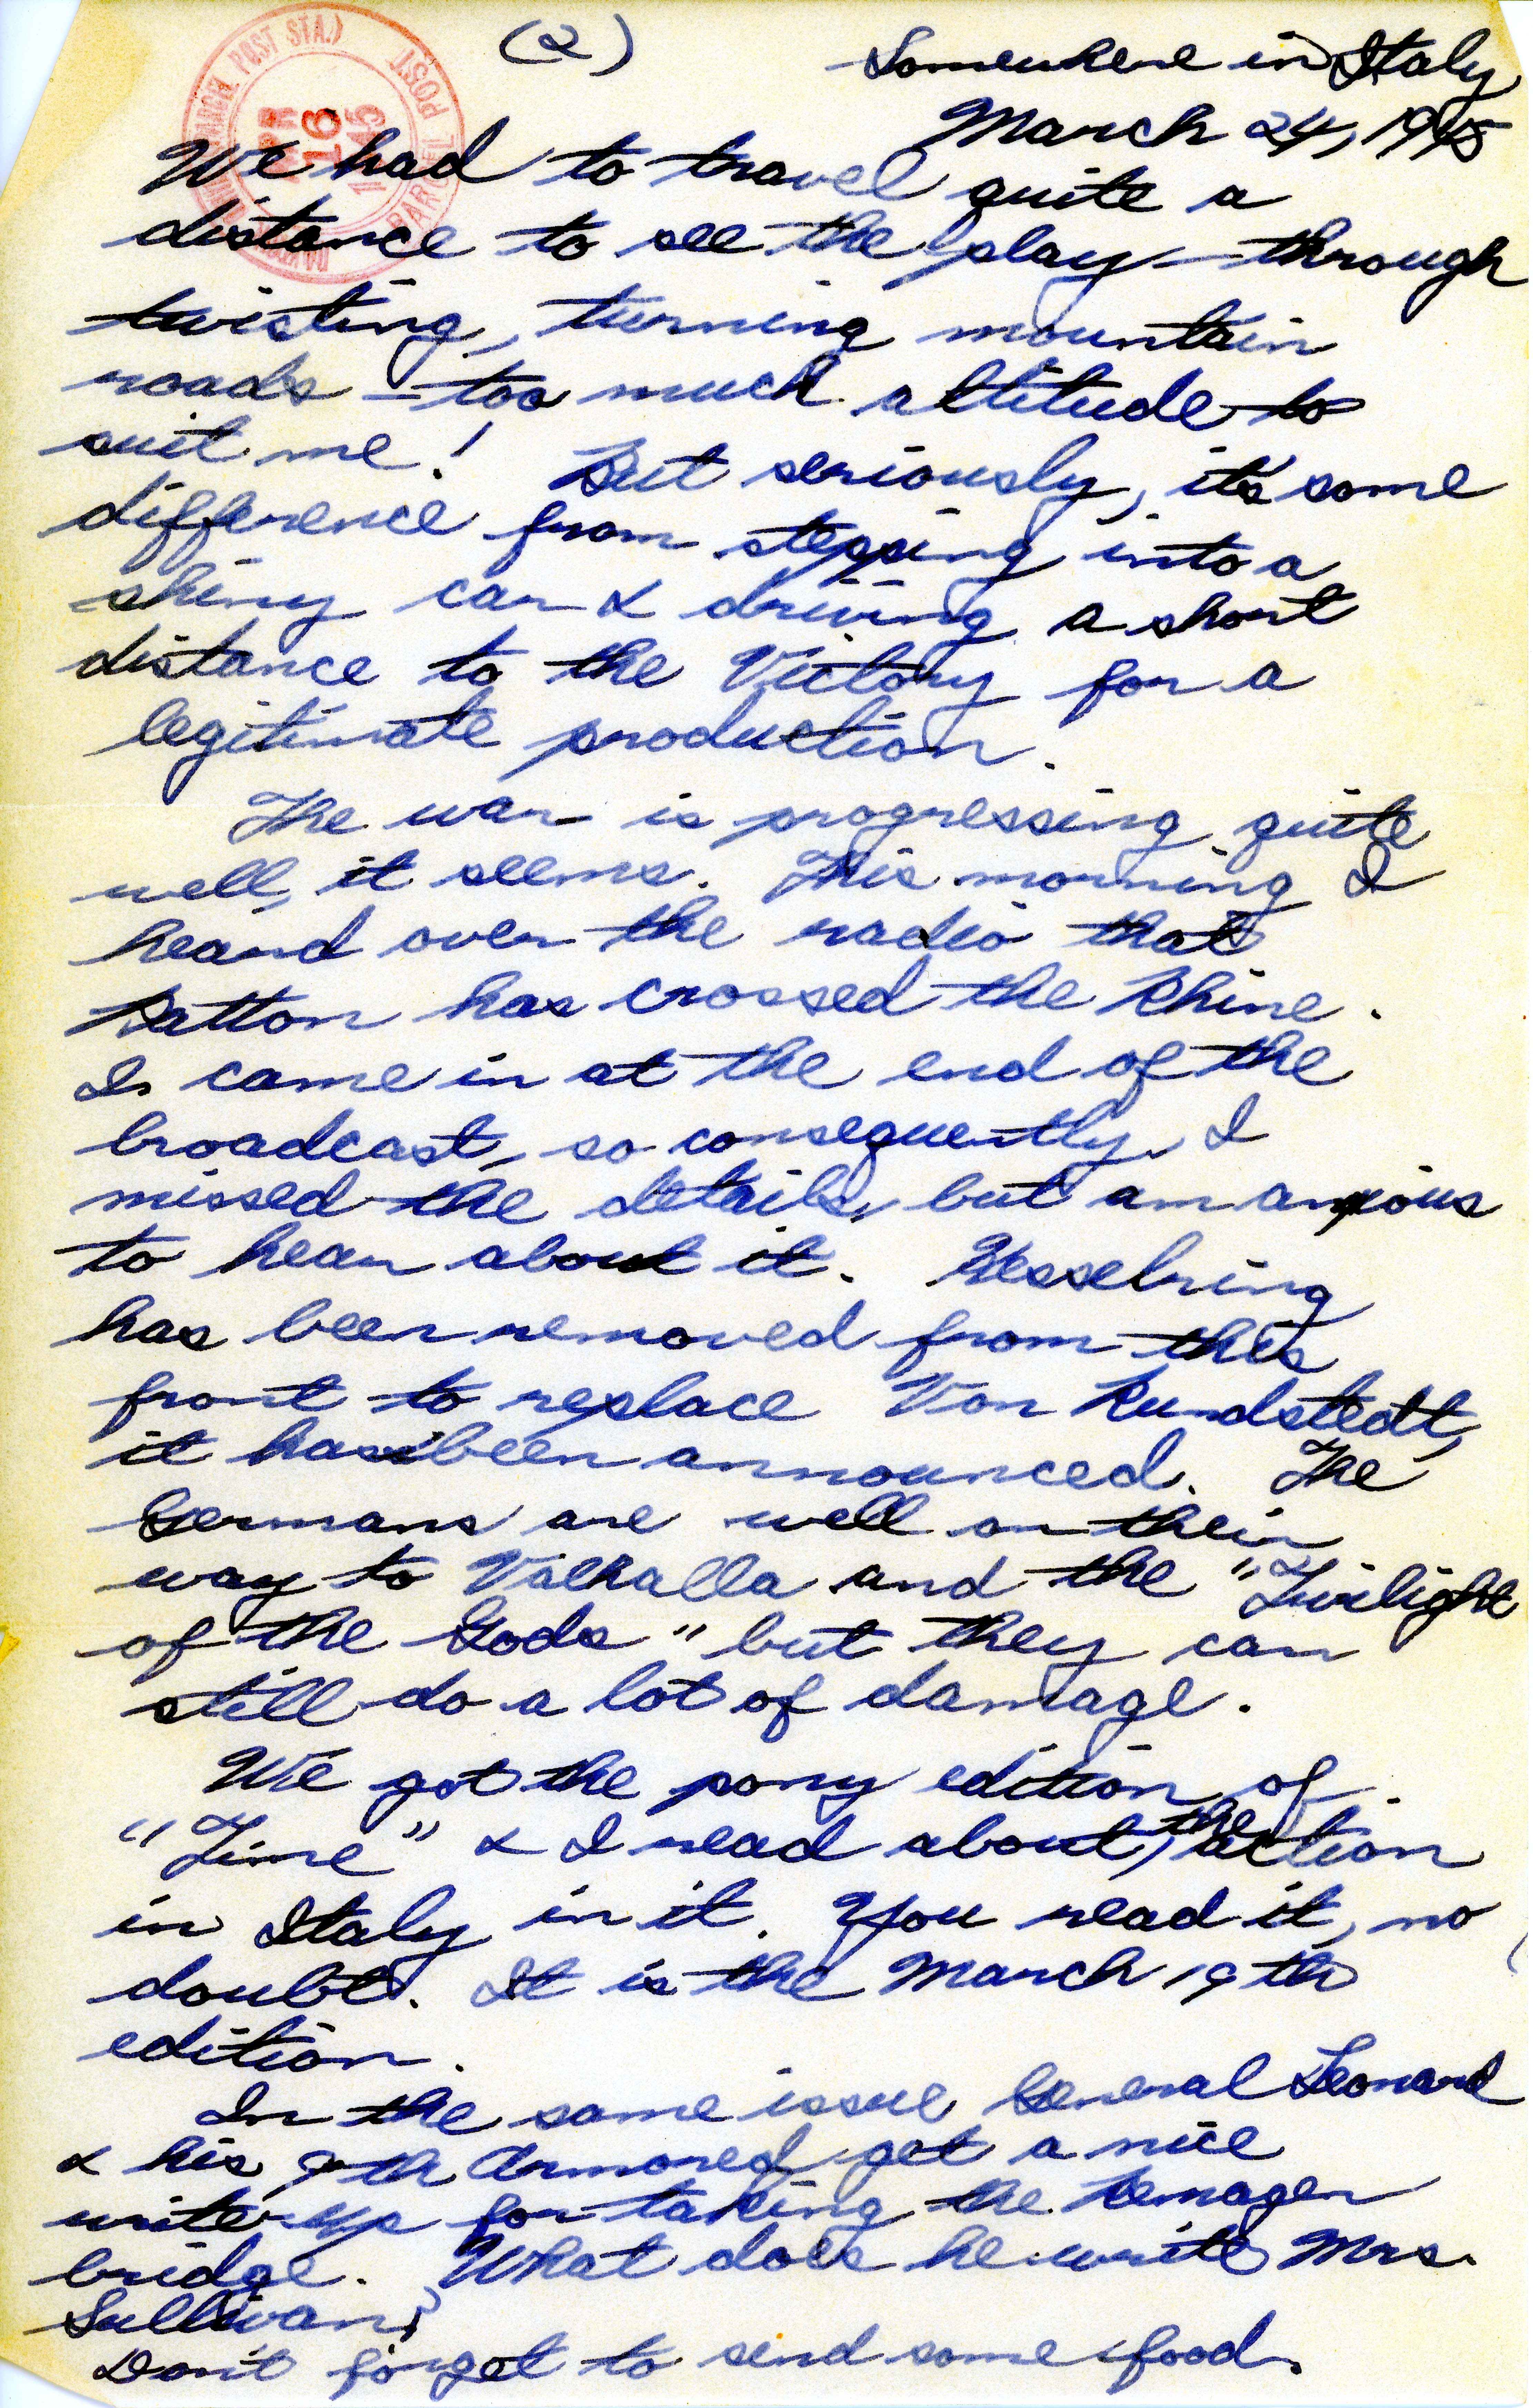 (2)
Somewhere in Italy
March 24, 1945
POST STA.)
POST)
APR
16
1945
We had to travel quite a
distance to see the play - through
twisting, turning mountain
roads - too much altitude to
suit me! But seriously, it's some
difference from stepping into a
shiny car & driving a short
distance to the Victory for a
legitimate production.
The war is progressing quite
well, it seems. This morning I
heard over the radio that
Patton has crossed the Rhine.
I came in at the end of the
broadcast, so consequently, I
missed the details, but am anxious
to hear about it. Kesselring
has been removed from this
front to replace Von Rundstedt,
it has been announced. The
Germans are well on their
way to Valhalla and the "Twilight
of the Gods" but they can
still do a lot of damage.
We got the pony edition of
"Time" & I read about the action
in Italy in it. You read it, no
doubt. It is the March 19th
edition.
In the same issue General Leonard
& his 9th Armored get a nice
write-up for taking the Remagen
bridge. What does he write Mrs.
Sullivan?
Don't forget to send some food.